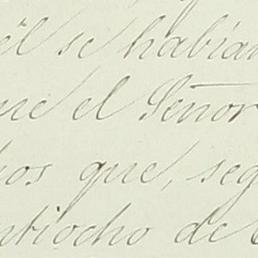 él se habían
que el Señor
hos que, seg
ntiocho de